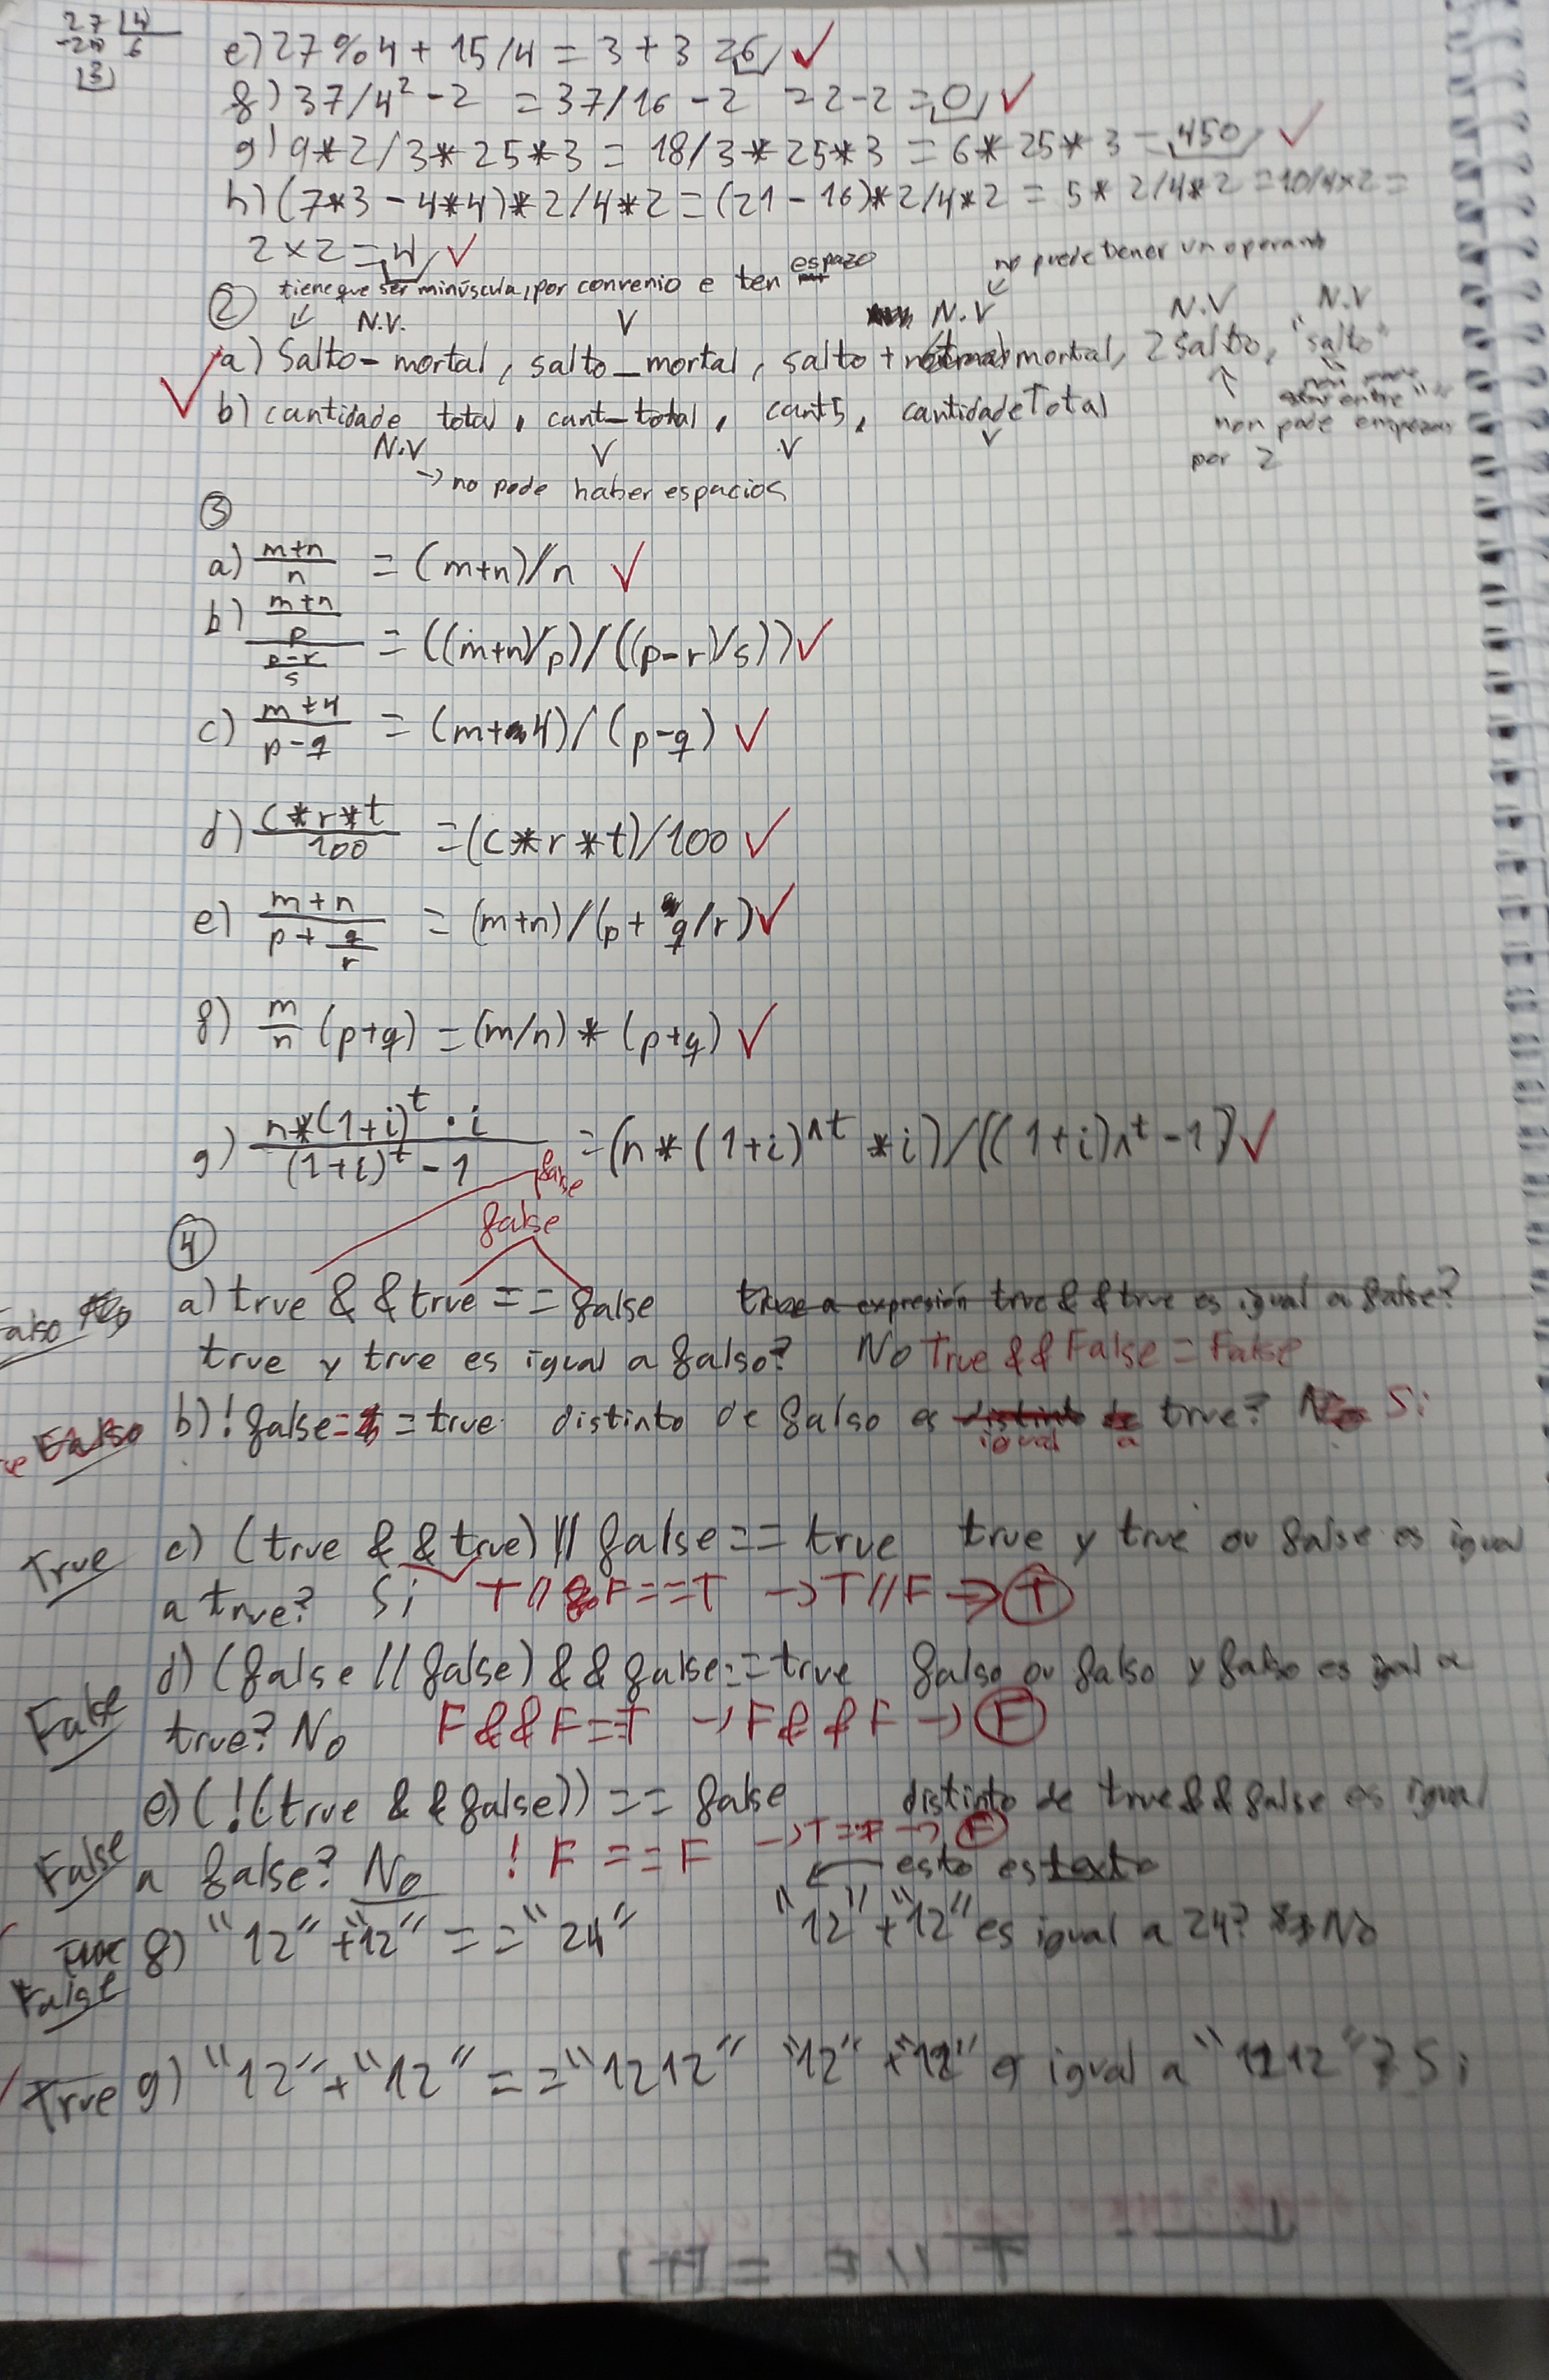 27 |4
-24 6
|3|
e) 27%4 + 15/4 = 3 + 3 = 6 ✓
f) 37/4² - 2 = 37/16 - 2 = 2-2 = 0 ✓
g) 9*2/3*25*3 = 18/3*25*3 = 6*25*3 = 450 ✓
h) (7*3 - 4*4)*2/4*2 = (21 - 16)*2/4*2 = 5*2/4*2 = 10/4×2 =
2×2 = 4 ✓
no puede tener un operando
② tiene que ser minúscula, por convenio e ten espazo
↙ N.V. V N.V N.V N.V
✓ a) Salto-mortal, salto_mortal, salto + mortal, 2salto, "salto"
b) cantidade total, cant_total, cant5, cantidadeTotal
N.V V V V
non pode empezar
por 2
→ no pode haber espacios
③
a) m+n / n = (m+n)/n ✓
b) m+n / p / p-r / s = ((m+n)/p)/((p-r)/s)) ✓
c) m+4 / p-q = (m+4)/(p-q) ✓
d) C*r*t / 100 = (C*r*t)/100 ✓
e) m+n / p + q / r = (m+n)/(p+q/r) ✓
f) m / n (p+q) = (m/n)*(p+q) ✓
g) n*(1+i)^t · i / (1+i)^t - 1 = (n*(1+i)^t *i)/((1+i)^t -1) ✓
false
false
④
a) true && true == false true a expresión true && true es igual a false?
Falso
true y true es igual a falso? No True && False = False
b) !false == true distinto de falso es igual a true? Si
Falso
c) (true && true) || false == true true y true ou false es igual
True
a true? Si T || F == T → T || F → T
d) (false || false) && false == true falso ou falso y falso es igual a
False
true? No F && F == T → F && F → F
e) (!(true && false)) == false distinto de true && false es igual
False
a false? No ! F == F → T == F → F
esto es texto
f) "12" + "12" == "24" "12" + "12" es igual a 24? No
False
True g) "12" + "12" == "1212" "12" + "12" es igual a "1212"? Si